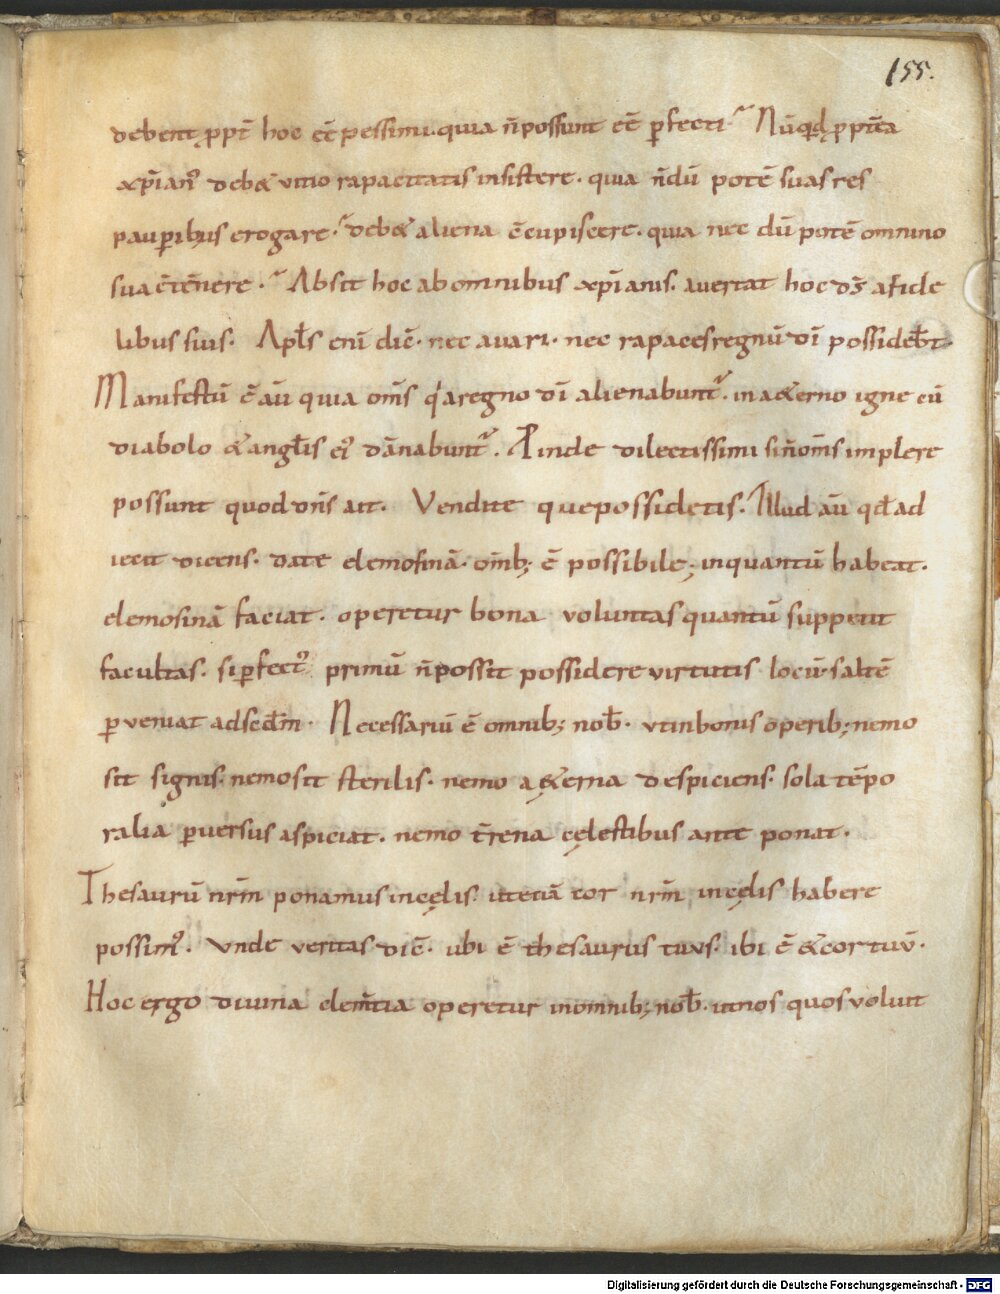 155.
debent ꝓpt̄ hoc eē pessimi. quia n̄ possunt eē ꝑfecti Nūqđ ꝓpt̄ea
xp̄ianꝰ deb& uitio rapacitatis insistere. quia nc̄dū potē suas res
pauꝑibus erogare. deb& aliena c̄cupiscere. quia nec dū potē omnino
sua c̄tēnere. Absit hoc ab omnibus xp̄ianis. auertat hoc d̄s a fide
libus suis. Apl̄s enī dic̄. nec auari. nec rapaces regnū dī possideb̄t.
Manifestū ē aū quia om̄s qͥ a regno dī alienabunt̄. in a&erno igne cū
diabolo & angl̄is eiꝰ dānabunt̄. Proinde dilectissimi si n̄ om̄s implere
possunt quod dn̄s ait. Vendite que possidetis. Illud aū qđ ad
iecit dicens. date elemosinā. om̄ib; ē possibile; inquantū habeat.
elemosinā faciat. operetur bona uoluntas quantū suppetit
facultas. si ꝑfectꝰ primū n̄ possit possidere uirtutis locū. saltē
ꝑueniat ad scd̄m. Necessariū ē omnib; nob̄. ut in bonis operib; nemo
sit signis. nemo sit sterilis. nemo a&erna despiciens. sola tēpo
ralia ꝑuersus aspiciat. nemo t̄rena cęlestibus ante ponat.
Thesaurū nr̄m ponamus in cęlis. ut etiā cor nr̄m in cęlis habere
possimꝰ. Vnde ueritas dic̄. ubi ē thesaurus tuus. ibi ē & cor tuū.
Hoc ergo diuina clem̄tia operetur in omnib; nob̄. ut nos quos uoluit
Digitalisierung gefördert durch die Deutsche Forschungsgemeinschaft - DFG